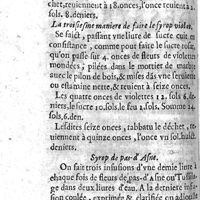 chet, reuiennent à 18. onces, l'once reuient à 2.
sols. 8. deniers.
La troisiesme maniere de faire le syrop violat.
Se faict, passant vne liure de sucre cuit en
consistance, comme pour faire le sucre rosat,
qu'on passe sur 4. onces de fleurs de violettes
mondées, pilées dans le mortier de marbre
auec le pilon de bois, & mises dās vne seruiette
ou estamine nette, & reuient à seize onces.
Les quatre onces de violettes 12. sols 6. de-
niers, le sucre 10. sols. le feu 2. sols, Somme 24.
sols, 6. den.
Lesdites seize onces, rabbatu le déchet, re-
uiennent à quinze onces, l'once vn sol. huict
deniers.
Syrop de pas-d'Asne.
On fait trois infusions d'vne demie liure à
chaque fois de fleurs de pas-d'Asne ou Tussila-
ge dans deux liures d'eau. A la derniere infu-
sion coulée, exprimée & clarifiée on adiouste